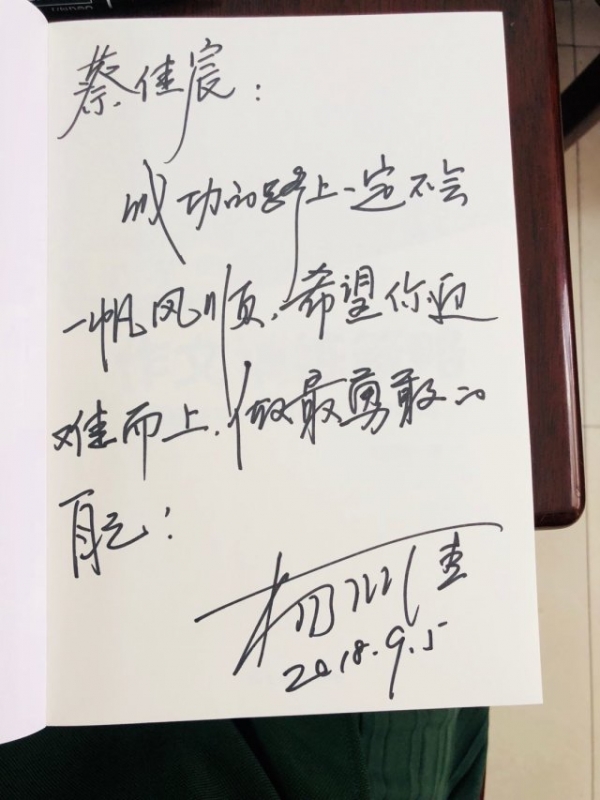 蔡佳宸：
成功的路上一定不会
一帆风顺，希望你迎
难而上，做最勇敢的
自己！
2018.9.5